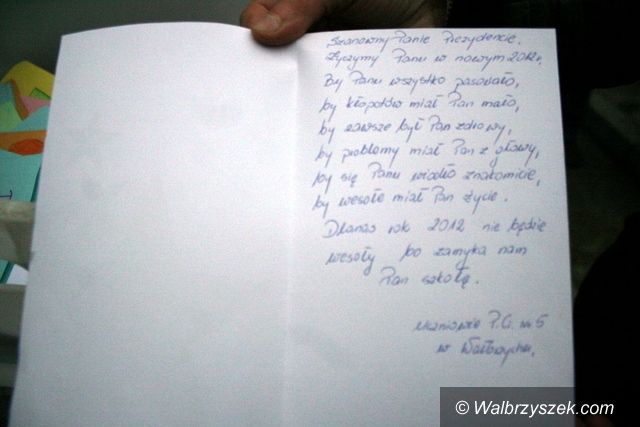 Szanowny Panie Prezydencie.
Życzymy Panu w nowym 2012r,
By Panu wszystko pasowało,
by kłopotów miał Pan mało,
by zawsze był Pan zdrowy,
by problemy miał Pan z głowy,
by się Panu wiodło znakomicie,
by wesołe miał Pan życie.
Dlanas rok 2012 nie będzie
wesoły bo zamyka nam
Pan szkołę.
Uczniowie P.G. nr 5
w Wałbrzychu.
© Walbrzyszek.com